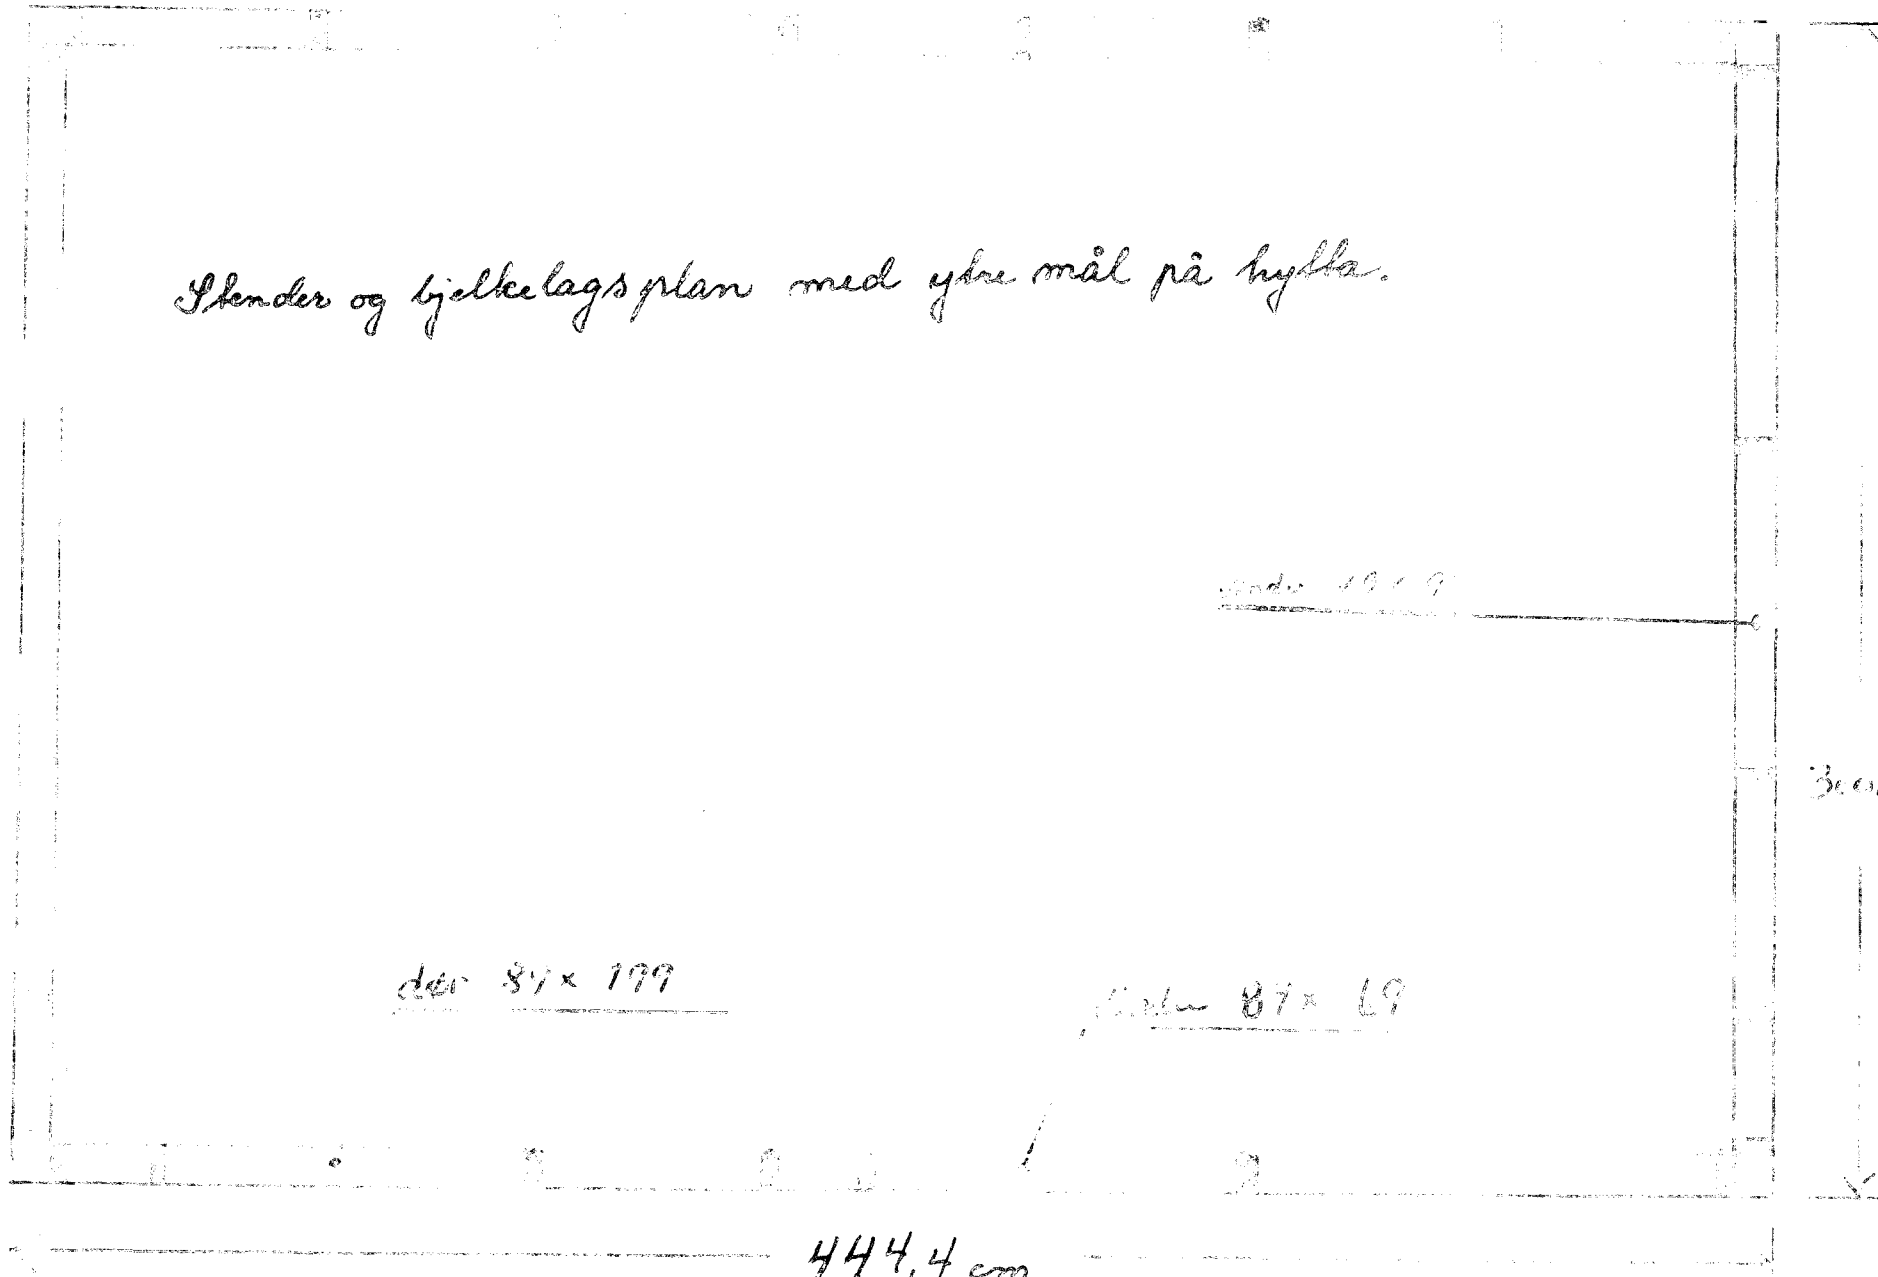 Stender og bjelkelagsplan med ytre mål på hytta.
dør 87 x 199
87 x 69
444,4 cm